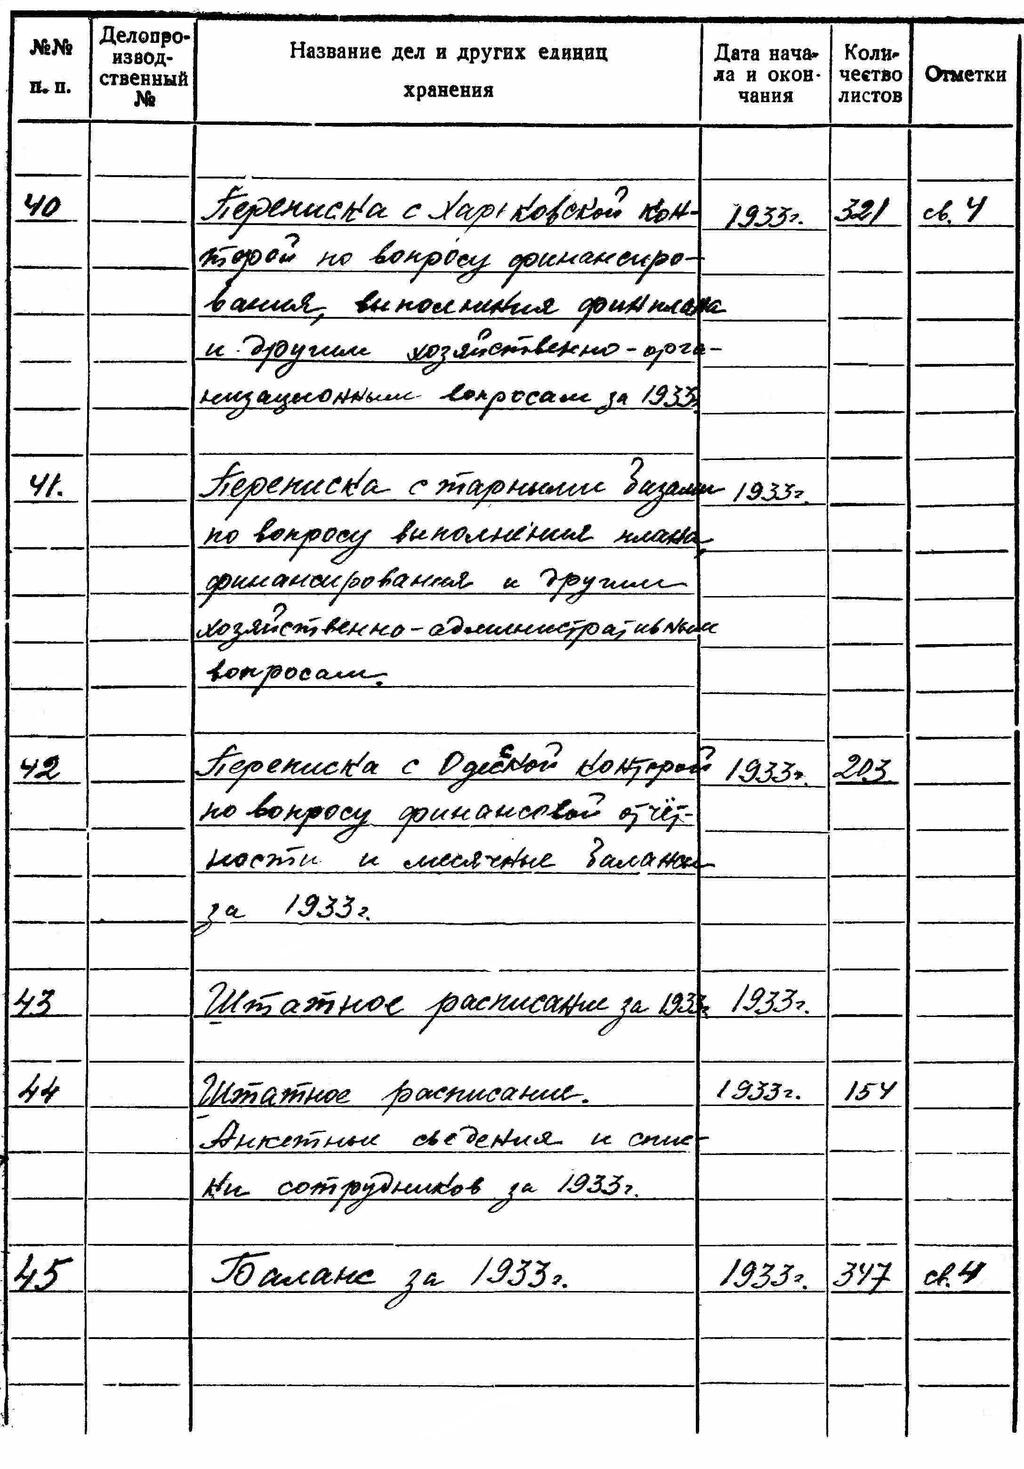 №№ п. п.
Делопроизводственный №
Название дел и других единиц хранения
Дата начала и окончания
Количество листов
Отметки
40 Переписка с Харьковской кон- 1933г. 321 св. 4
торой по вопросу финансиро-
вания, выполнения финплана
и другим хозяйственно-орга-
низационным вопросам за 1933г.
41. Переписка с тарными базами 1933г.
по вопросу выполнения плана,
финансирования и другим
хозяйственно-административным
вопросам.
42 Переписка с Одесской конторой 1933г. 203
по вопросу финансовой отчёт-
ности и месячные балансы
за 1933г.
43 Штатное расписание за 1933г. 1933г.
44 Штатное расписание. 1933г. 154
Анкетные сведения и спис-
ки сотрудников за 1933г.
45 Баланс за 1933г. 1933г. 347 св. 4